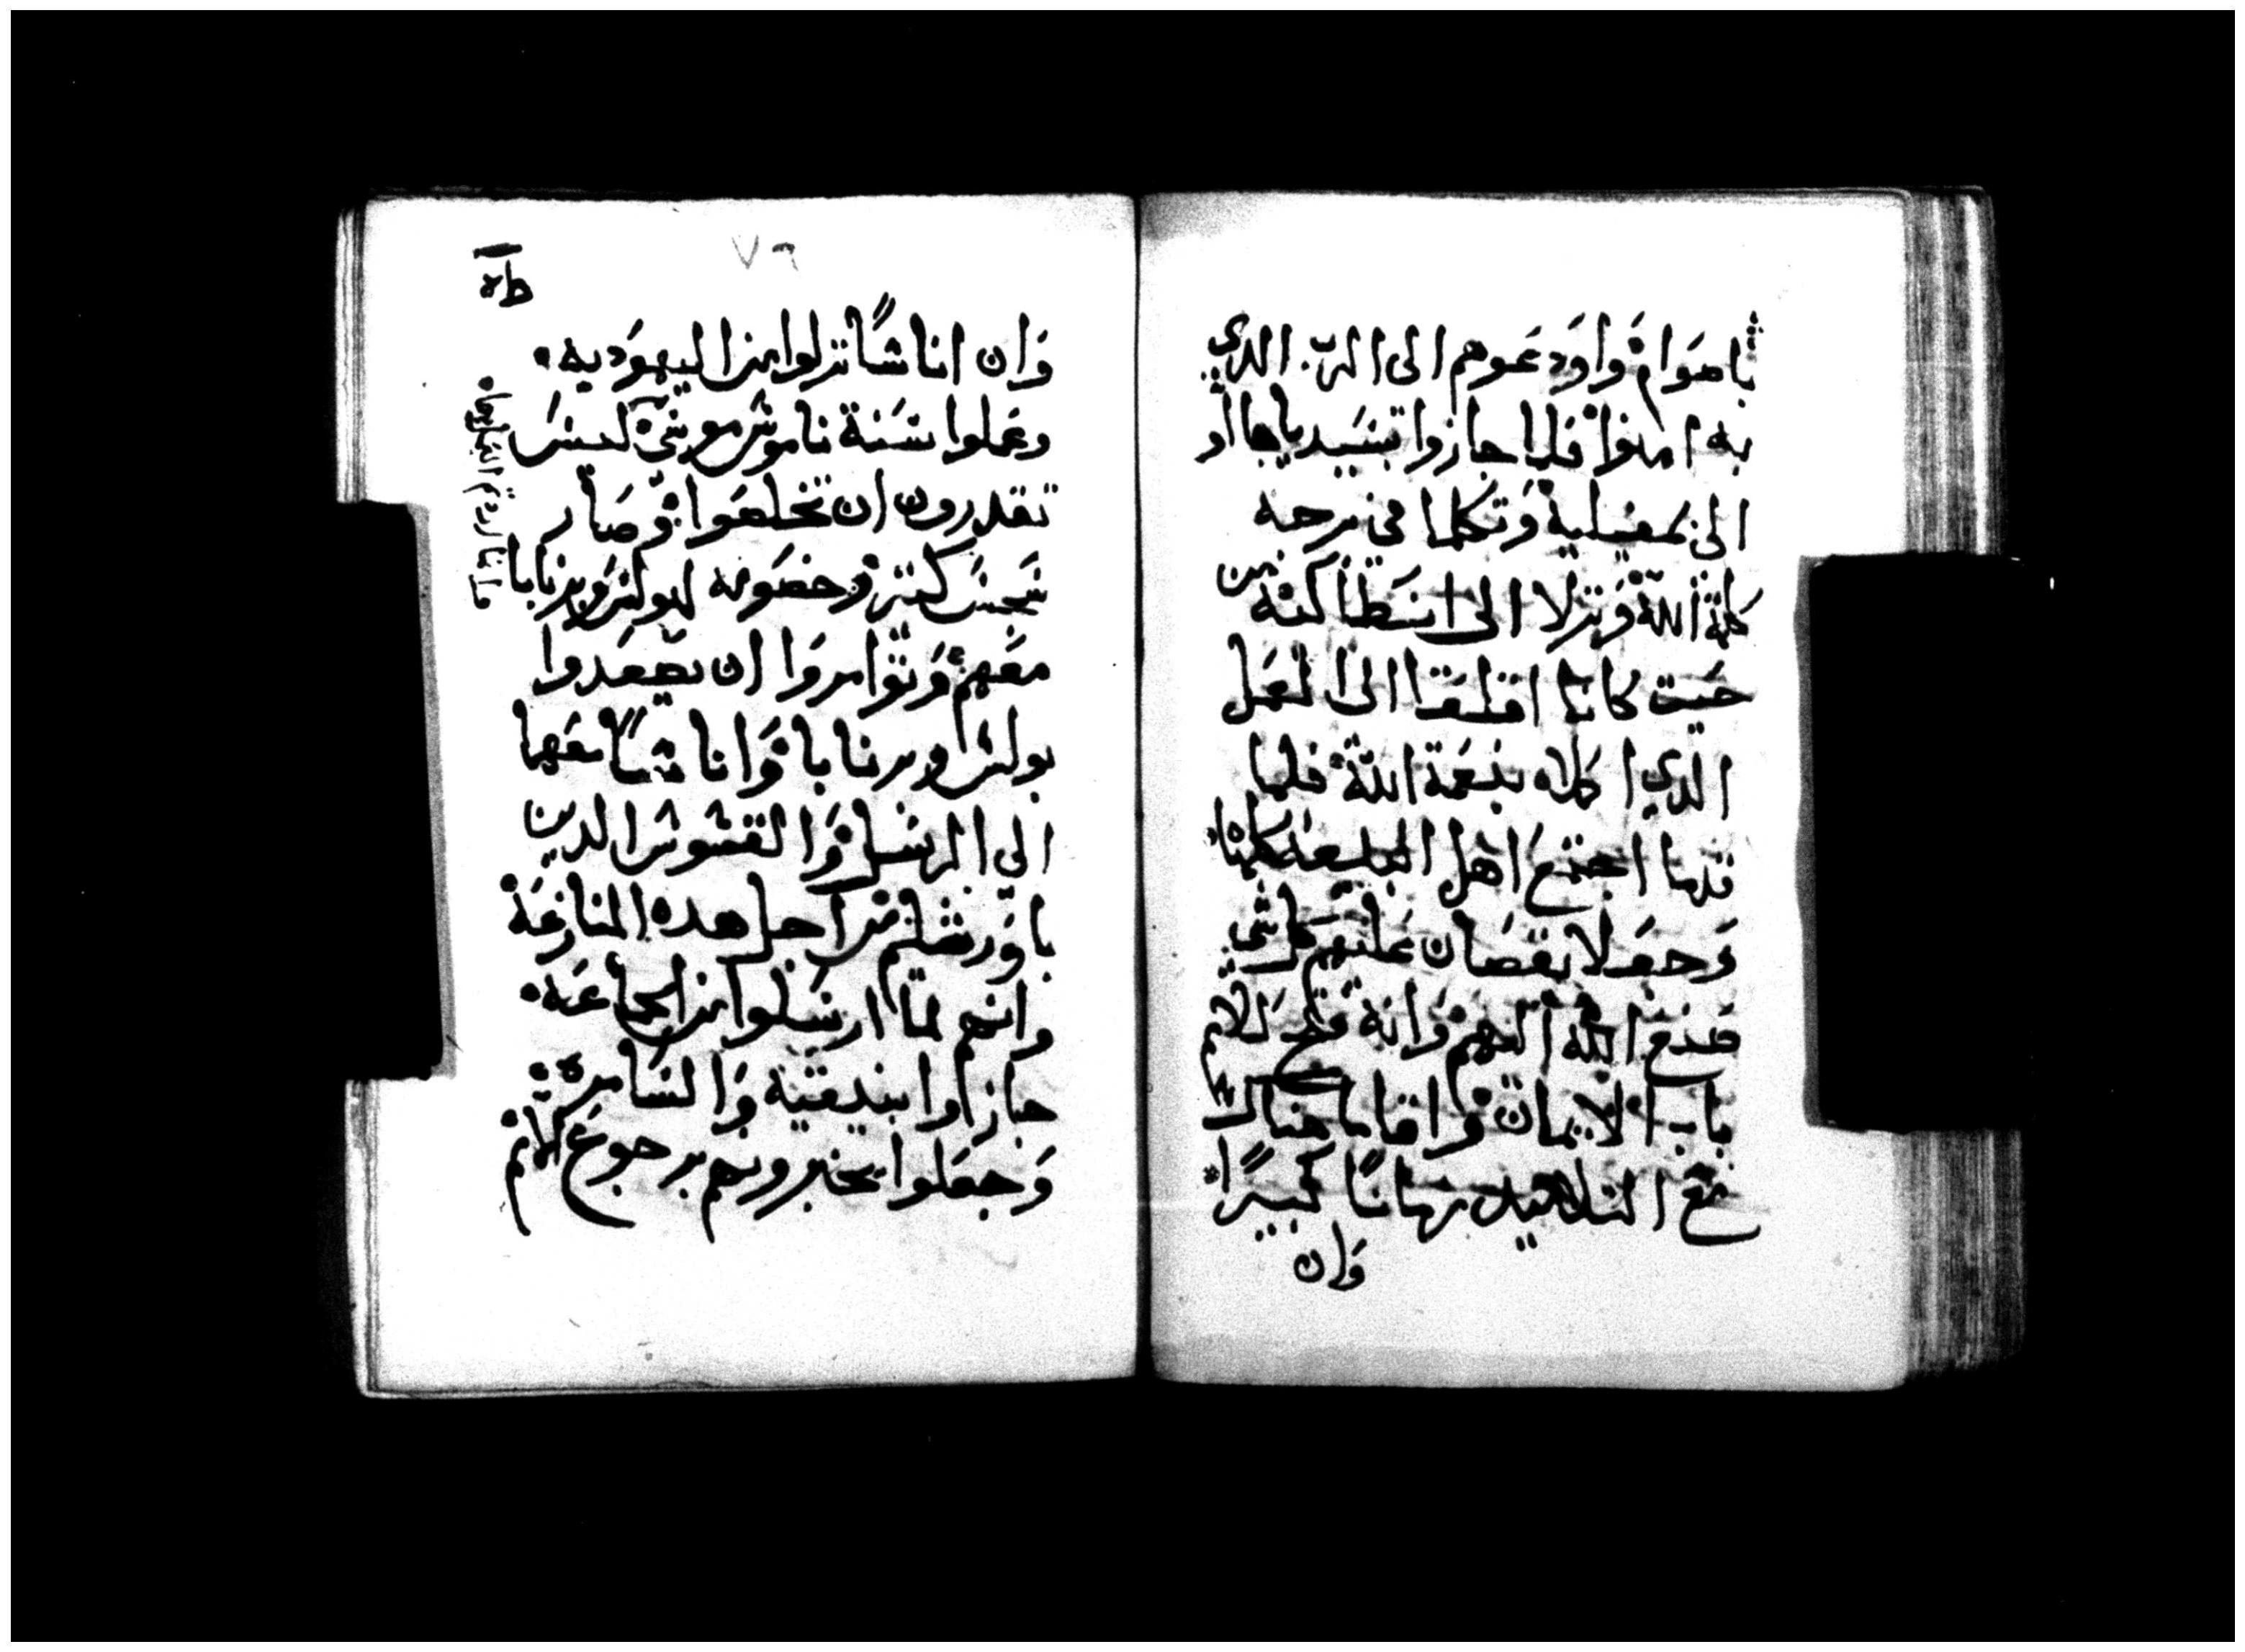 باصوام واودعوهم الى الرب الدي
به امنوا فلما جازوا بسيديا جااو
الى بمفيلية وتكلما في برجه
كلمة الله ونزلا الى انطاكيه من
حيت كانا الى العمل
الدي اكملاه بنعمة الله فلما
قدما اجتمع اهل البيعه كلها
وجعلا يقصان عليهم كل شي
صنع الله اليهم وانه فتح للامم
باب الايمان واقاما هناك
مع التلاميد زمانا كبيرا
وان
٧٦
وان اناسا نزلوا من اليهوديه
وعملوا سنة ناموس موسى ليس
تقدرون ان تخلصوا وصار
سجس كتير وخصومه لبولس وبرنابا
معهم وتوامروا ان يصعدوا
بولس وبرنابا واناسا معهما
الى الرسل والقسوس الدين
باورشليم من اجل هده المنازعة
وانهم لما ارسلوا من الجماعه
جازاوا بفنيقية والسامره
وجعلوا يخبرونهم برجوع الامم